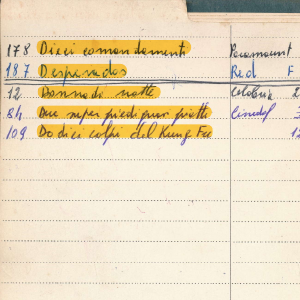 178 Dieci comandamenti Paramount
187 Desperados Red F
12 Donna di notte Globus 2
84 Due super piedi quasi piatti Cinedif
109 Dodici colpi del Kung Fu 12